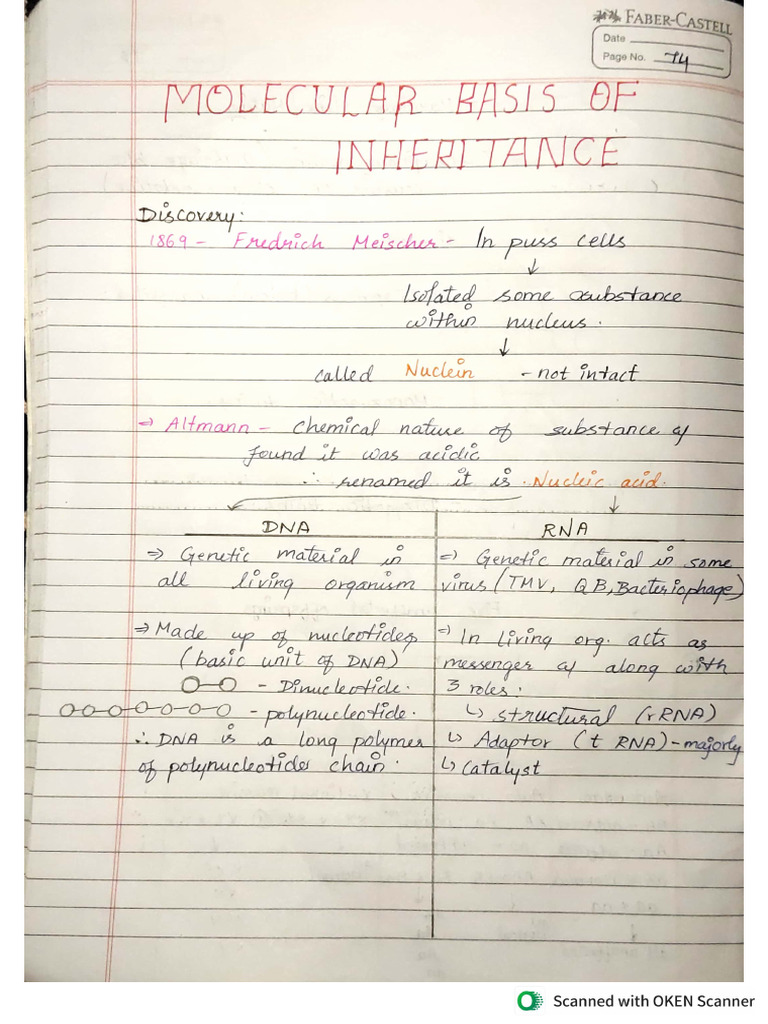 FABER-CASTELL
Date
Page No. 74
MOLECULAR BASIS OF
INHERITANCE
Discovery:
1869 - Fredrich Meischer - In puss cells
↓
Isolated some substance
within nucleus.
↓
called Nuclein - not intact
⇒ Altmann - chemical nature of substance &
found it was acidic
∴ renamed it is Nucleic acid.
DNA
⇒ Genetic material in
all living organism
⇒ Made up of nucleotides
(basic unit of DNA)
- Dinucleotide.
- polynucleotide.
∴ DNA is a long polymer
of polynucleotide chain.
RNA
⇒ Genetic material in some
virus (TMV, QB, Bacteriophage)
⇒ In living org. acts as
messenger & along with
3 roles:
↳ structural (rRNA)
↳ Adaptor (t RNA) - majorly
↳ Catalyst
Scanned with OKEN Scanner